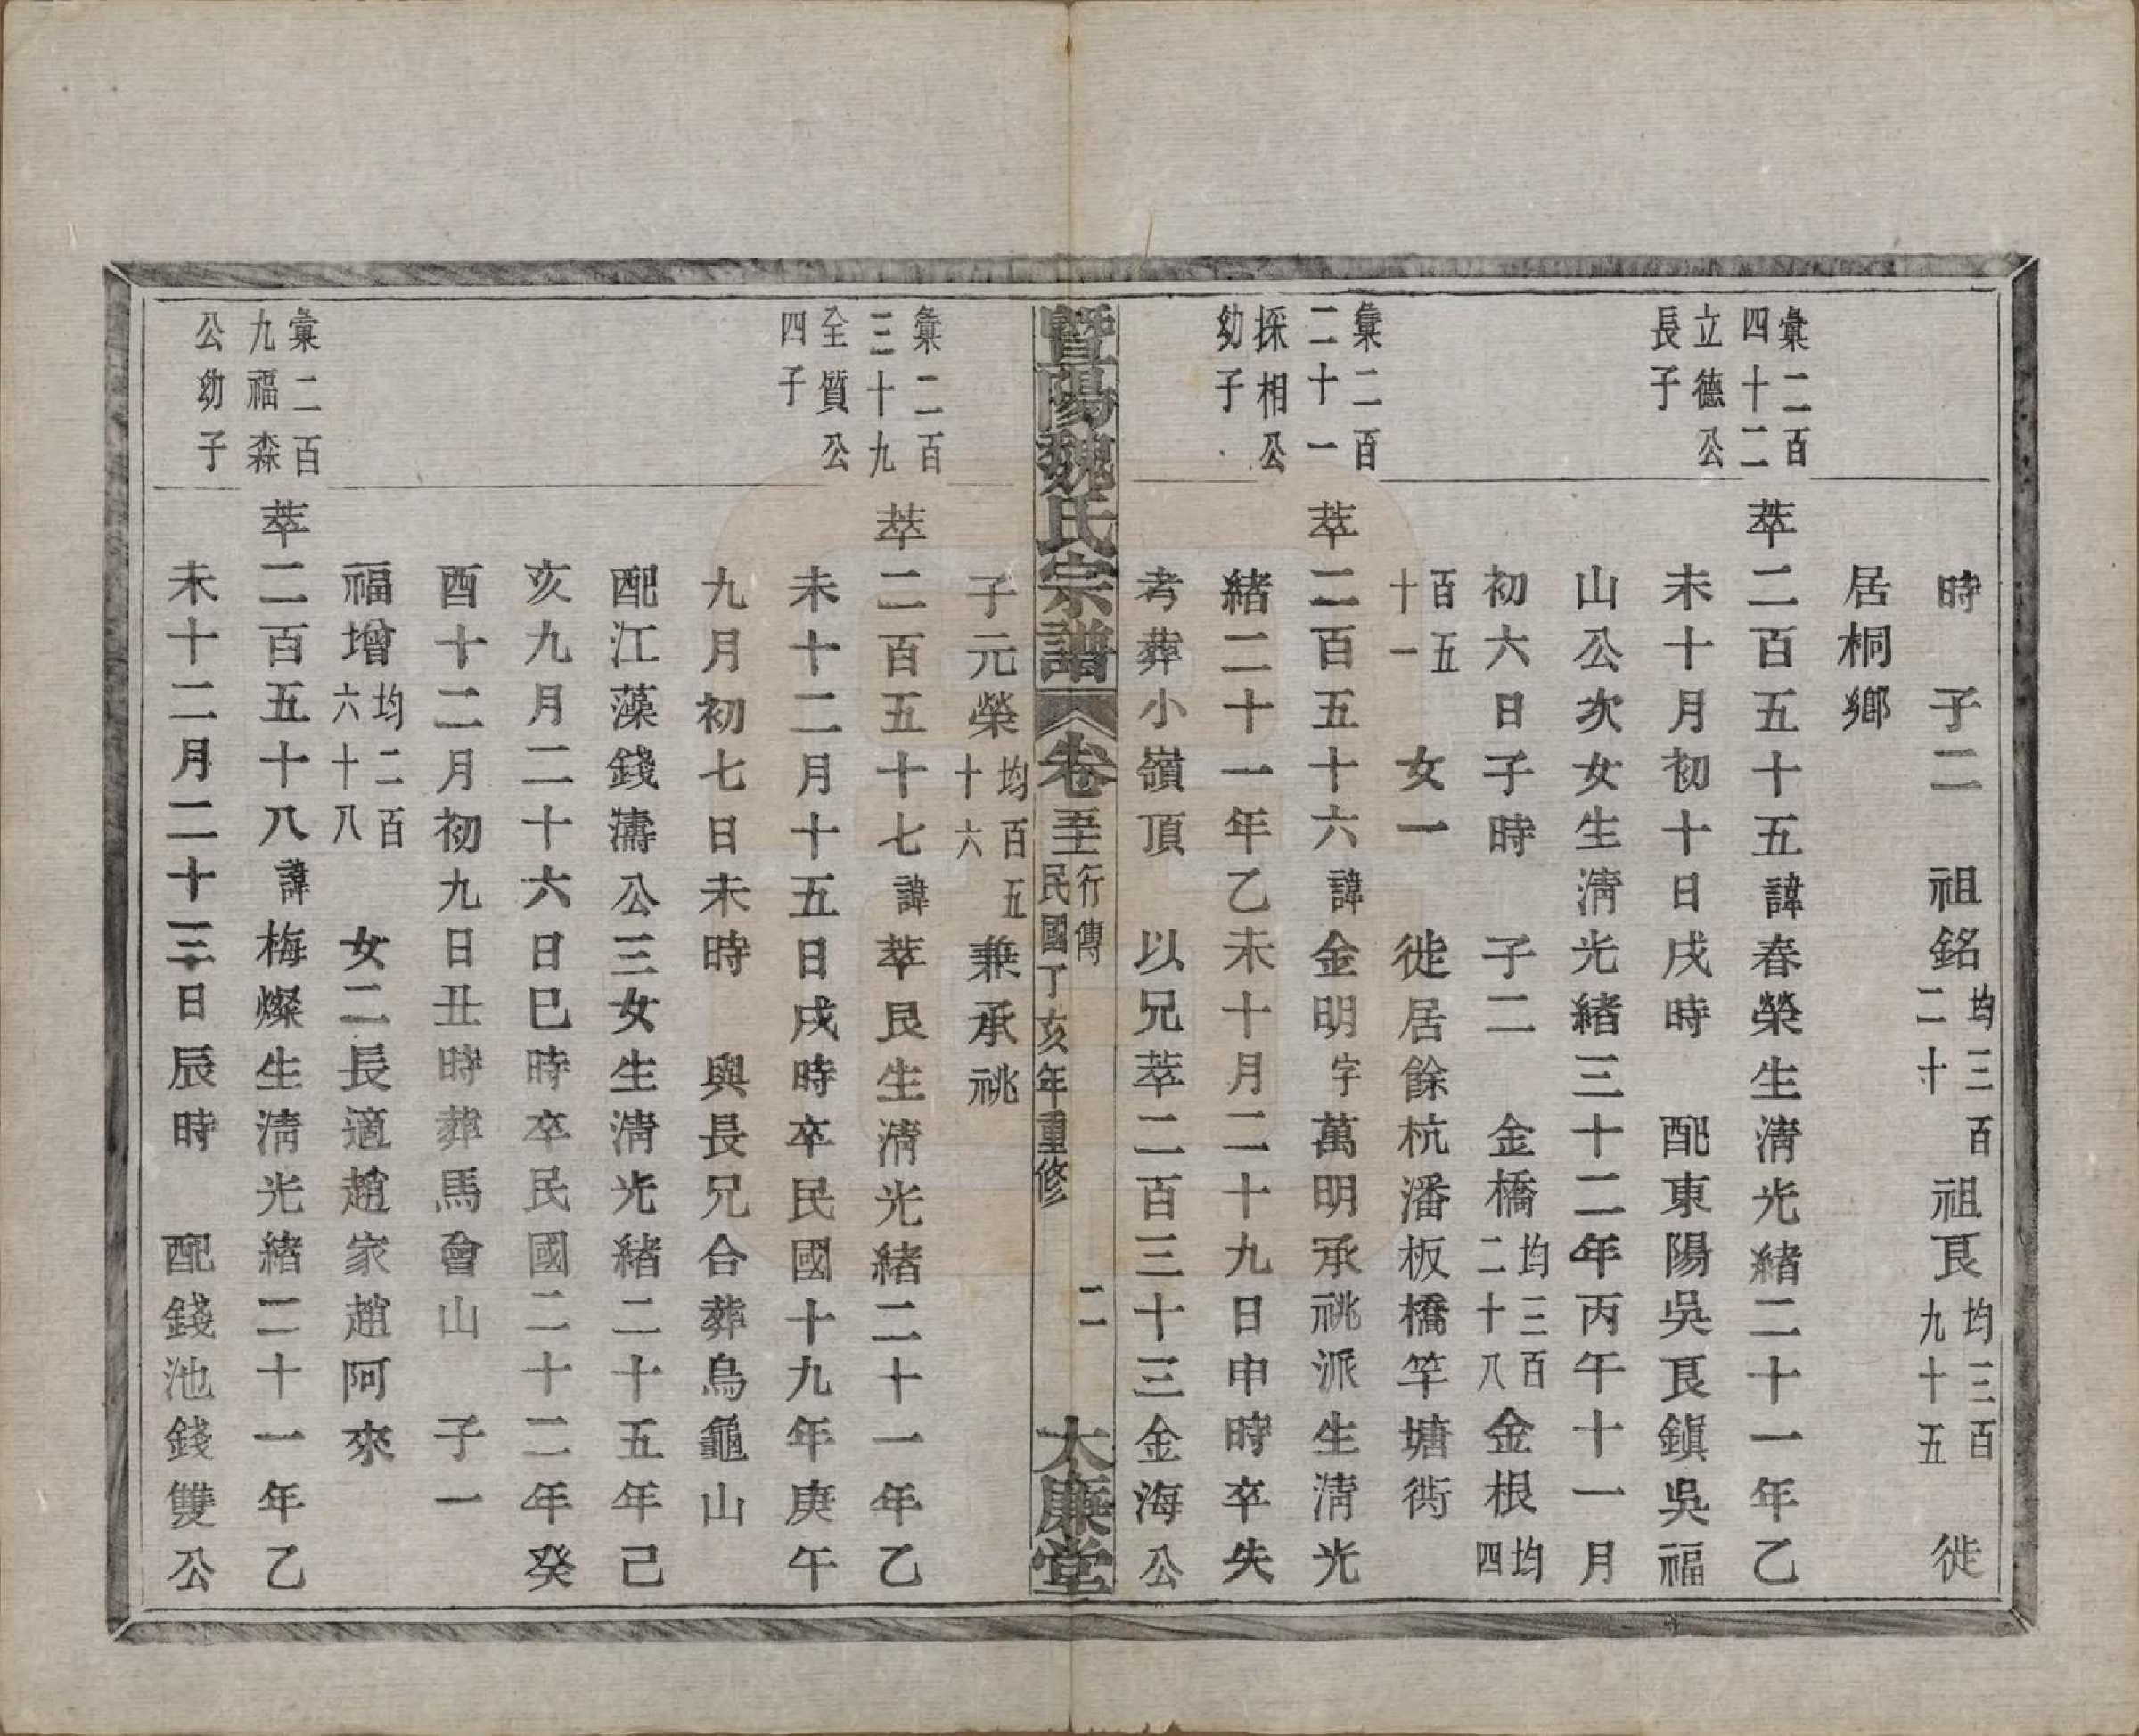 時　子二　祖銘均三百二十　祖艮均三百九十五　徙
居桐鄉
彙二百四十二立德公長子
萃二百五十五諱春榮生淸光緒二十一年乙
未十月初十日戌時　配東陽吳艮鎭吳福
山公次女生淸光緒三十二年丙午十一月
初六日子時　子二　金橋均三百二十八金根均四
百五十一　女一　徙居餘杭潘板橋竿塘衖
彙二百二十一採相公幼子
萃二百五十六諱金明字萬明承祧派生淸光
緒二十一年乙未十月二十九日申時卒失
考葬小嶺頂　以兄萃二百三十三金海公
子元榮均百五十六　兼承祧
暨陽魏氏宗譜　卷　行傳　民國丁亥年重修　二　大廉堂
彙二百三十九全質公四子
萃二百五十七諱萃艮生淸光緒二十一年乙
未十二月十五日戌時卒民國十九年庚午
九月初七日未時　與長兄合葬烏龜山
配江藻錢濤公三女生淸光緒二十五年己
亥九月二十六日巳時卒民國二十二年癸
酉十二月初九日丑時葬馬會山　子一
福增均二百六十八　女二長適趙家趙阿來
彙二百九福森公幼子
萃二百五十八諱梅燦生淸光緒二十一年乙
未十二月二十三日辰時　配錢池錢雙公